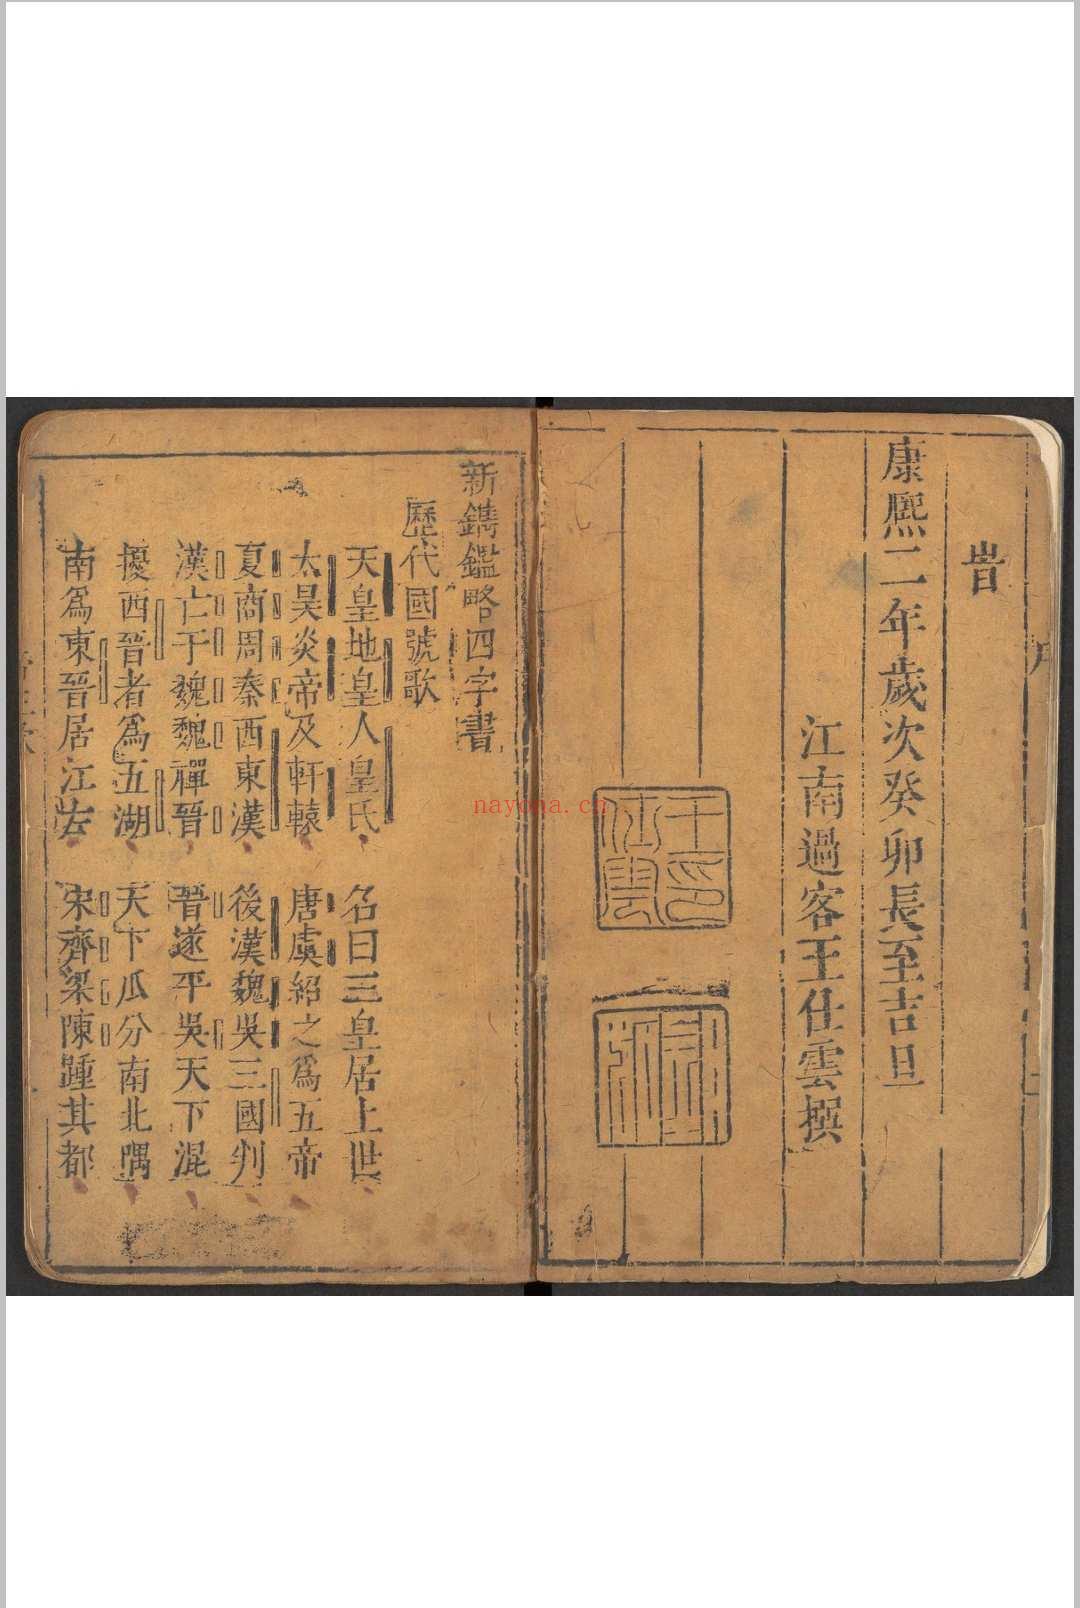 旹
康熙二年歲次癸卯長至吉旦
江南過客王仕雲撰
王印仕雲
新鐫鑑略四字書
歷代國號歌
天皇地皇人皇氏 名曰三皇居上世
太昊炎帝及軒轅 唐虞紹之為五帝
夏商周秦西東漢 後漢魏吳三國判
漢亡于魏魏禪晉 晉遂平吳天下混
擾西晉者為五湖 天下瓜分南北隅
南爲東晉居江左 宋齊梁陳踵其都
nayona.cn